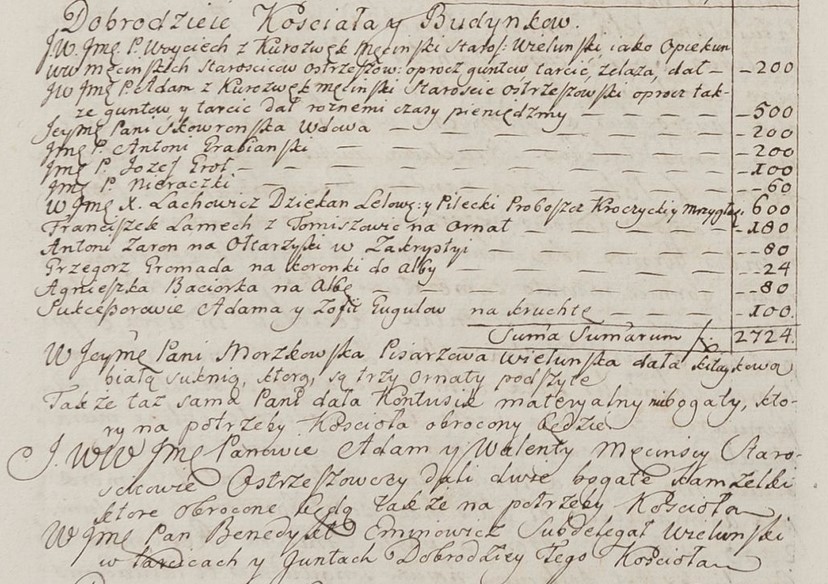 Dobrodzieie Kościoła y Budynkow.
J.W. Jmę P. Woyciech z Kurozwęk Męcinski Staros: Wielunski, iako Opiekun
WW Męcinskich Starościcow Ostrzeszow: oprocz guntow tarcic, żelaza, dał — — 200
JW Jmę P. Adam z Kurozwęk Męcinski Staroscic Ostrzeszowski oprocz tak-
że guntow y tarcic dał rożnemi czasy pieniędzmy — — — — 500
Jeymę Pani Skowronska Wdowa — — — — — — — — 200
Jmę P. Antoni Grabianski — — — — — — — — — 200
Jmę P. Jozef Grot — — — — — — — — — 100
Jmę P. Nieraczki — — — — — — — — — 60
W Jmę X. Lachowicz Dziekan Lelowę: y Pilecki Proboszcz Kroczycki y Mrzygłoc. 600
Franciszek Lamech z Tomiszowic na Ornat — — — — — 180
Antoni Zaron na Ołtarzyki w Zakrystyi — — — — — — 80
Grzegorz Gromada na koronki do Alby — — — — — — — 24
Agnieszka Baciorka na Albę — — — — — — — — 80
Sukcessorowie Adama y Zofii Gugulow na kruchtę — — — 100
Suma Sumarum 2724.
W Jeymę Pani Morzkowska Pisarzowa Wielunska dała kitaykową
białą suknię, ktorą, są trzy Ornaty podszyte
Także taż sama Pani dała Kontusik materyalny niebogaty, kto-
ry na potrzeby Kościoła obrocony będzie
J. WW Jmę Panowie Adam y Walenty Męcinscy Staro-
scicowie Ostrzeszowscy dali dwie bogate kamzelki
ktore obrocone będą także na potrzeby Kościoła
W Jmę Pan Benedykt Eminowicz Subdelegat Wielunski
w tarcicach y Guntach Dobrodziey tego Kościoła